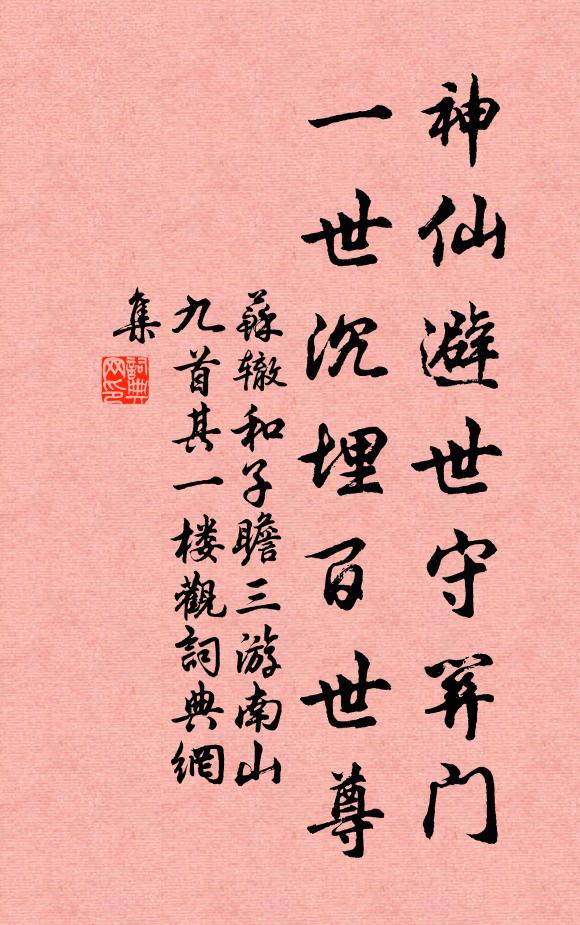 神仙避世守關门
一世沉埋百世尊
蘇辙和子瞻三游南山
九首其一楼觀詞典網
集
詞典
网印